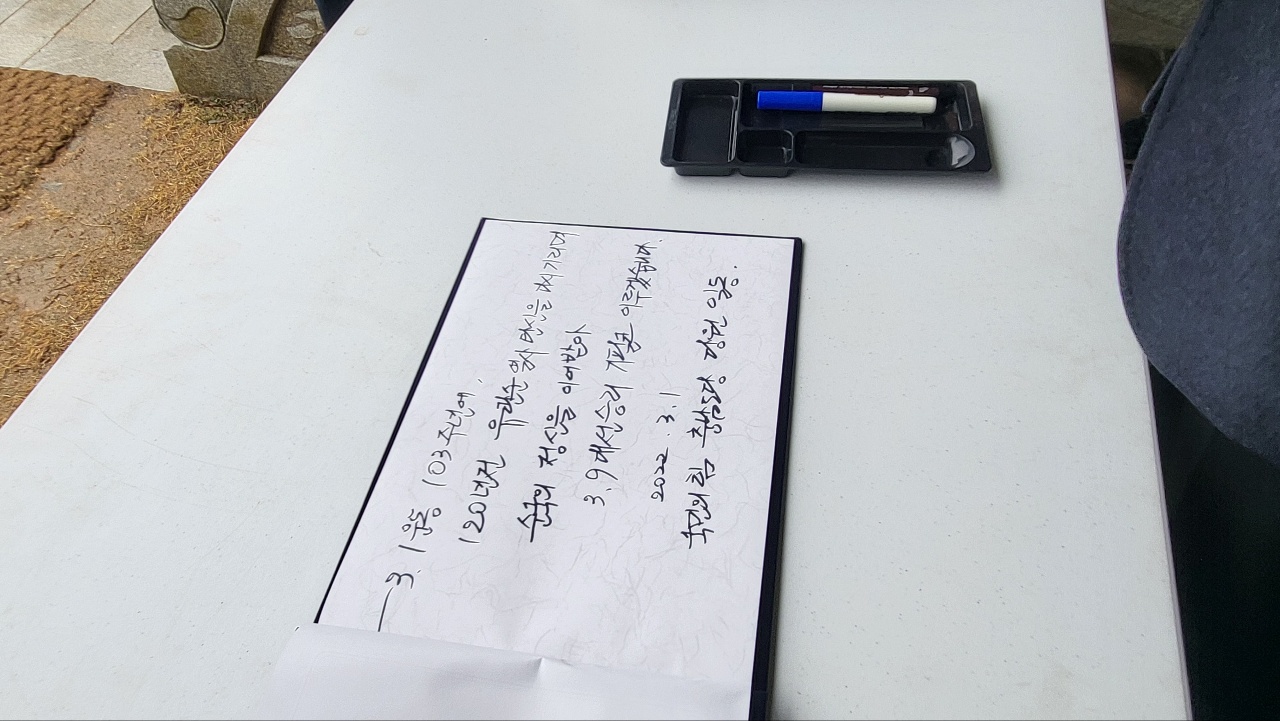 3.1운동 103주년에.
120년전 유관순 열사 정신을 새기리며
순국의 정신을 이어받아
3.9 대선승리 기필코 이루겠습니다.
2022. 3. 1
국민의힘 충남도당 당원 일동.